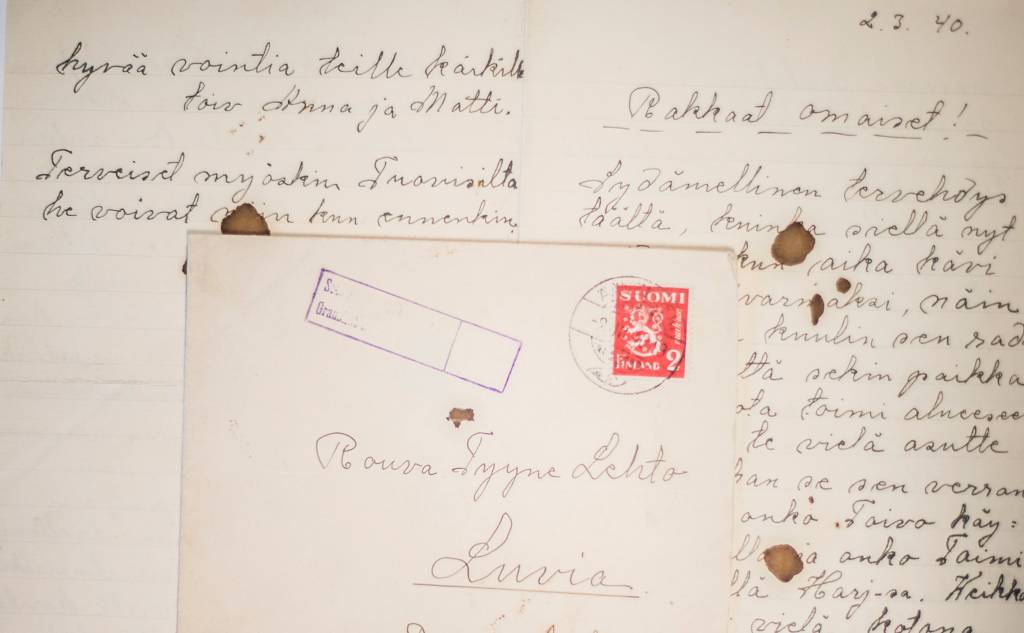 hyvää vointia teille
toiv Anna ja Matti.
Terveiset myöskin Tuovisilta
he voivat kun ennenkin.
2.3.40.
Rakkaat omaiset!
Sydämellinen tervehdys
täältä, kuinka siellä nyt
kun aika kävi
näin
kuulin sen
sekin paikka
toimi alueeseen
te vielä asutte
se sen verran
onko Toivo käy=
ja onko Taimi
Harj-sa. Heikk
vielä kotona
SUOMI
FINLAND 2
markkaa
Rouva Tyyne Lehto
Luvia